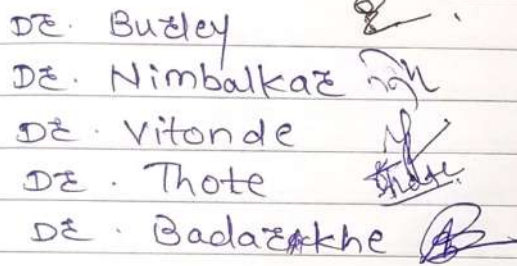 Dr. Burley
Dr. Nimbalkar
Dr. Vitonde
Dr. Thote
Dr. Badarkhe